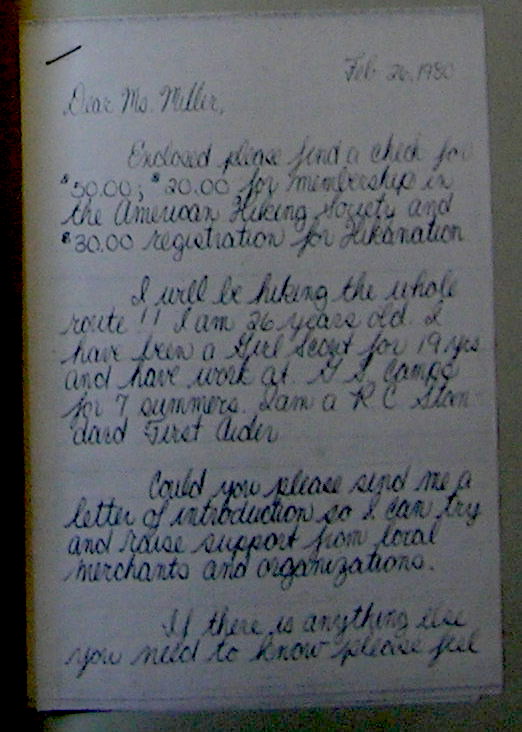 Feb 26, 1980
Dear Ms. Miller,
Enclosed please find a check for
$50.00; $20.00 for membership in
the American Hiking Society and
$30.00 registration for Hikanation
I will be hiking the whole
route!! I am 26 years old. I
have been a Girl Scout for 19 yrs
and have work at G.S. Camps
for 7 summers. I am a R.C. Stan-
dard First Aider
Could you please send me a
letter of introduction so I can try
and raise support from local
merchants and organizations.
If there is anything else
you need to know please feel